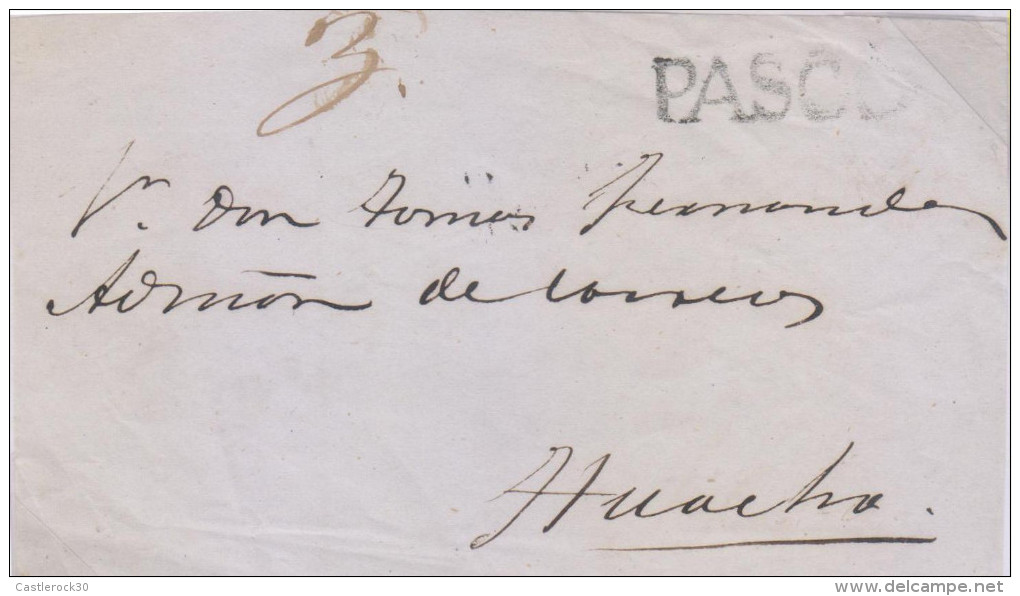 3.
PASCO
Sr. Don Tomas Fernandez
Admōn de Correos
Huacho.
Castlerock30
www.delcampe.net